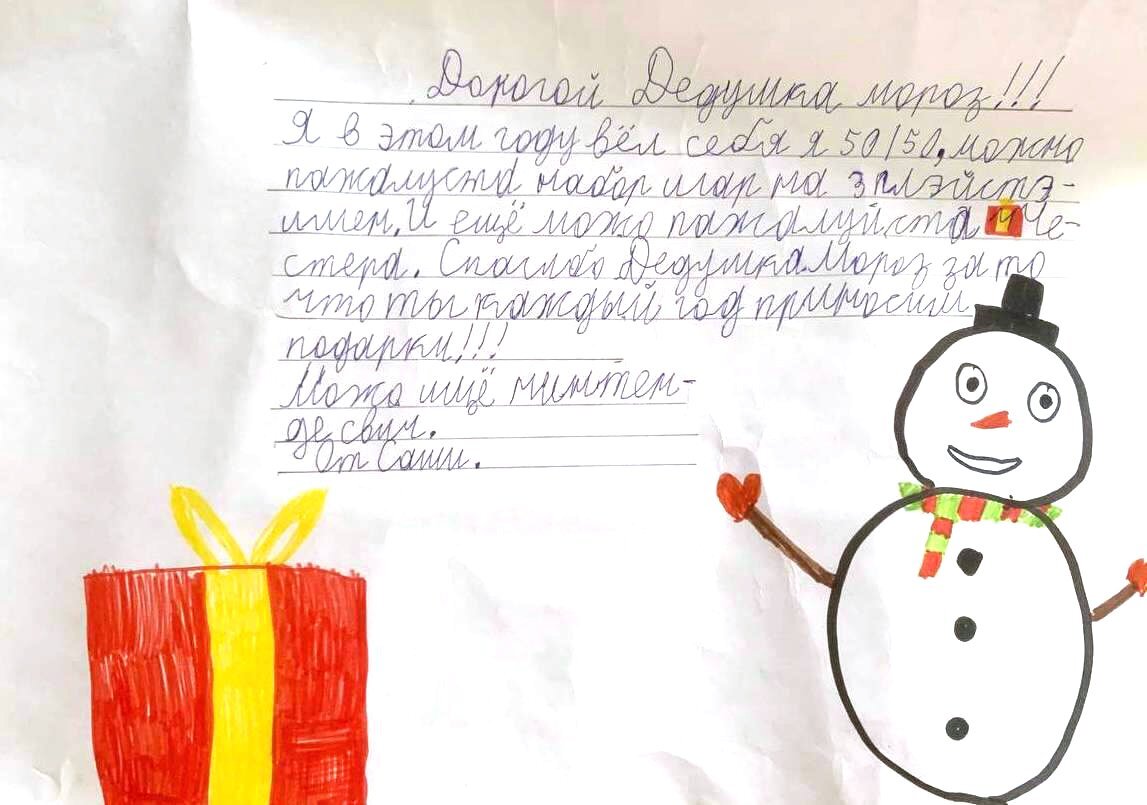 Дорогой Дедушка мороз!!!
Я в этом году вёл себя я 50/50, можно
пажалуста набор игар на 3 плэйстэ-
ишен. И ещё можо пажалуйста Че-
стера. Спасибо Дедушка Мороз за то
что ты каждый год приносиш
подарки!!!
Можо ищё нинтен-
де свич.
От Саши.